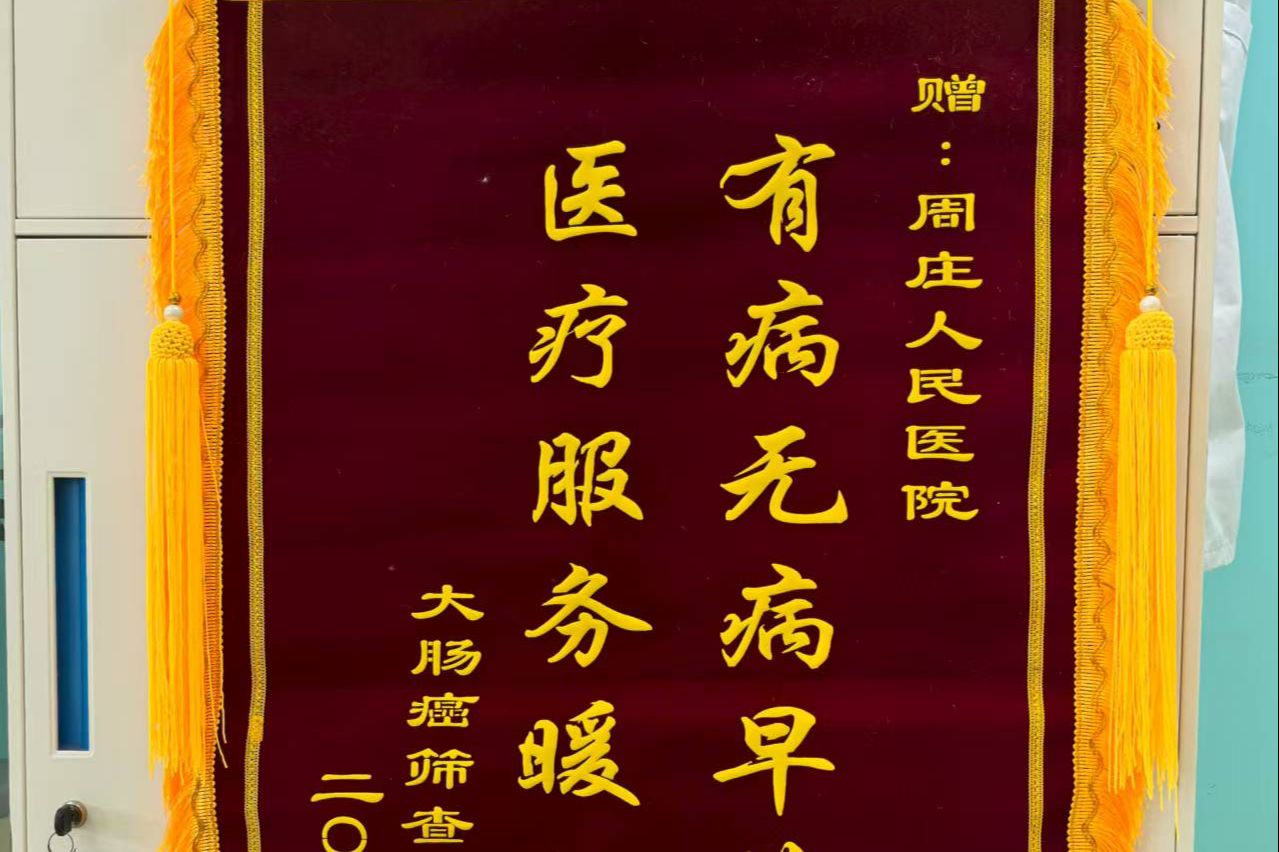 赠：周庄人民医院
有病无病早
医疗服务暖
大肠癌筛查
二〇